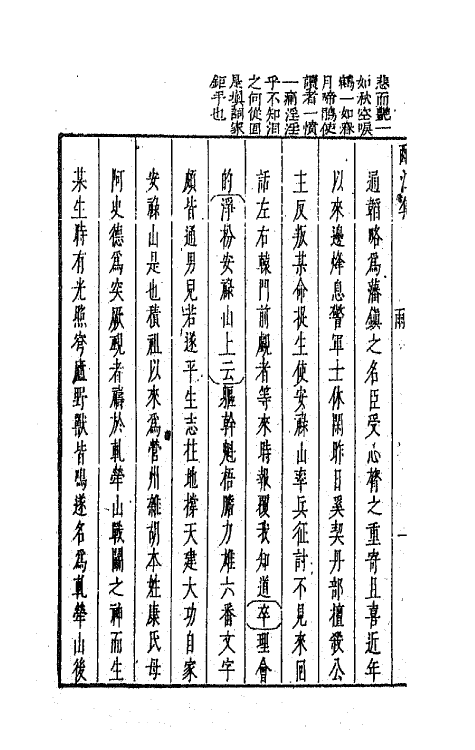 悲而艷一
如秋空唳
鶴一如春
月啼鵑使
讀者一憤
一痛淫淫
乎不知淚
之何從回
是與詞家
鉅乎也
酹江集
雨
一
通韜略為藩鎮之名臣受心膂之重寄且喜近年
以來邊烽息警軍士休閑昨日奚契丹部擅殺公
主反叛某命捉生使安祿山率兵征討不見來回
話左右轅門前覷者等來時報復我知道卒理會
的淨扮安祿山上云軀幹魁梧膽力雄六番文字
頗皆通男兒若遂平生志柱地撐天建大功自家
安祿山是也積祖以來為營州雜胡本姓康氏母
阿史德為突厥覡者禱於軋犖山戰鬭之神而生
某生時有光照穹廬野獸皆鳴遂名為軋犖山後